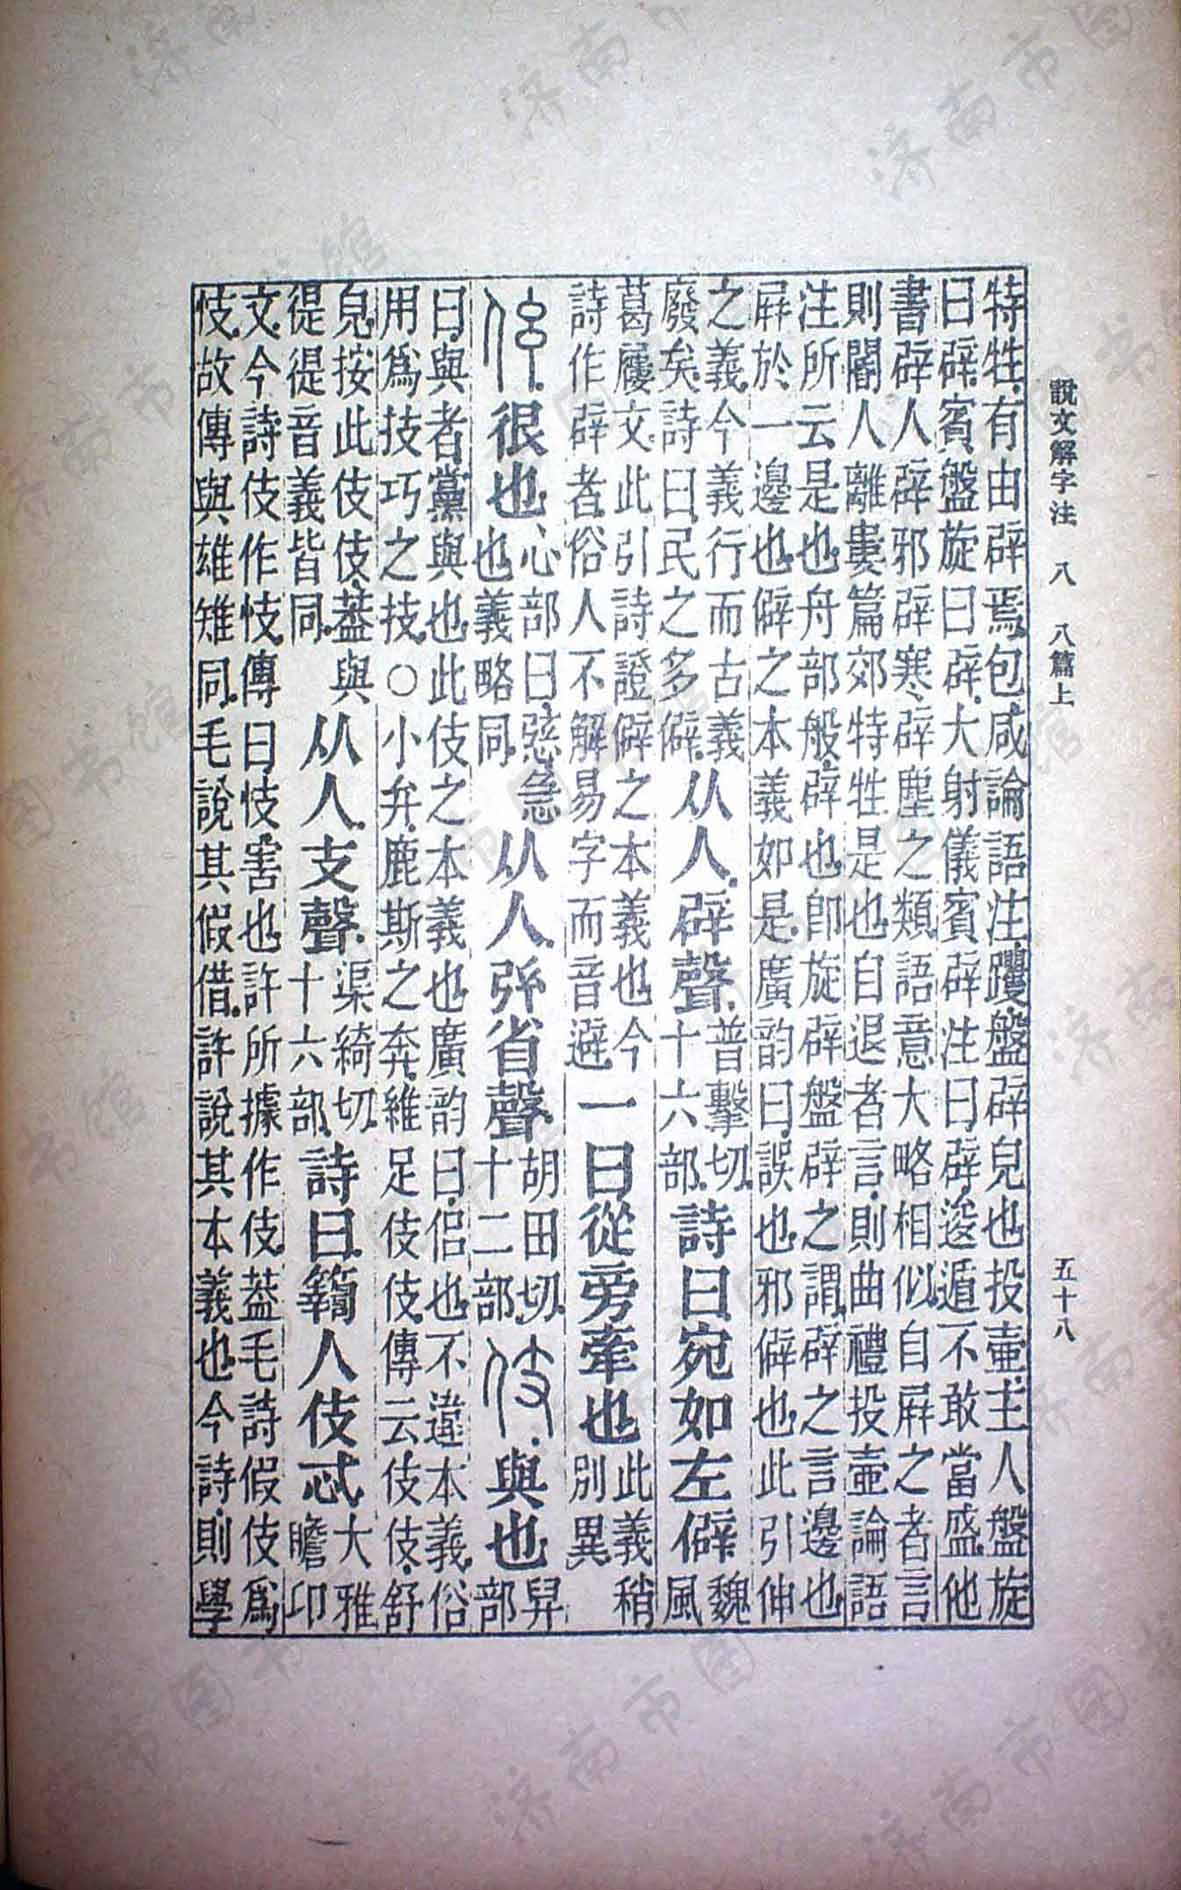 說文解字注 八 八篇上 五十八
特牲有由辟焉包咸論語注躩盤辟皃也投壷主人盤旋
曰辟賓盤旋曰辟大射儀賓辟注曰辟逡遁不敢當盛他
書辟人辟邪辟寒辟塵之類語意大略相似自屛之者言
則閽人離婁篇郊特牲是也自退者言則曲禮投壷論語
注所云是也舟部般辟也卽旋辟盤辟之謂辟之言邊也
屛於一邊也僻之本義如是廣韵曰誤也邪僻也此引伸
之義今義行而古義廢矣詩曰民之多僻从人辟聲普擊切十六部詩曰宛如左僻魏風
葛屨文此引詩證僻之本義也今詩作辟者俗人不解易字而音避一曰從旁牽也此義稍別異
伭很也心部曰急也義略同从人弦省聲胡田切十二部伎與也舁部
曰與者黨與也此伎之本義也廣韵曰侣也不違本義俗
用爲技巧之技○小弁鹿斯之奔維足伎伎傳云伎伎舒
皃按此伎伎葢與徥徥音義皆同从人支聲渠綺切十六部詩曰𥷚人伎忒大雅瞻卬
文今詩伎作忮傳曰忮害也許所據作伎葢毛詩假伎爲
忮故傳與雄雉同毛說其假借許說其本義也今詩則學